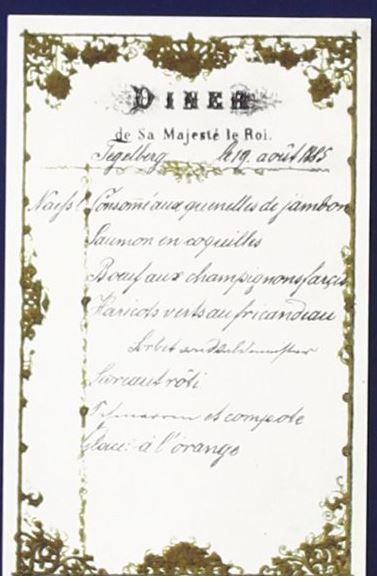 DINER
de Sa Majesté le Roi.
Tegelberg le 19. août 1885
Consomé aux quenelles de jambon
Saumon en coquilles
Bœuf aux champignons farcis
Haricots verts au fricandeau
Sorbet
rôti
et compote
Glace à l'orange